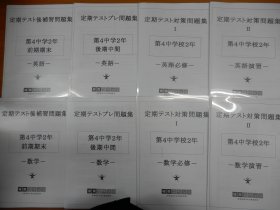 定期テスト後補習問題集
第4中学2年
前期期末
－英語－
定期テストプレ問題集
第4中学2年
後期中間
－英語－
定期テスト対策問題集
I
第4中学校2年
－英語必修－
定期テスト対策問題集
II
第4中学校2年
－英語演習－
定期テスト後補習問題集
第4中学2年
前期期末
－数学－
定期テストプレ問題集
第4中学2年
後期中間
－数学－
定期テスト対策問題集
I
第4中学校2年
－数学必修－
定期テスト対策問題集
II
第4中学校2年
－数学演習－